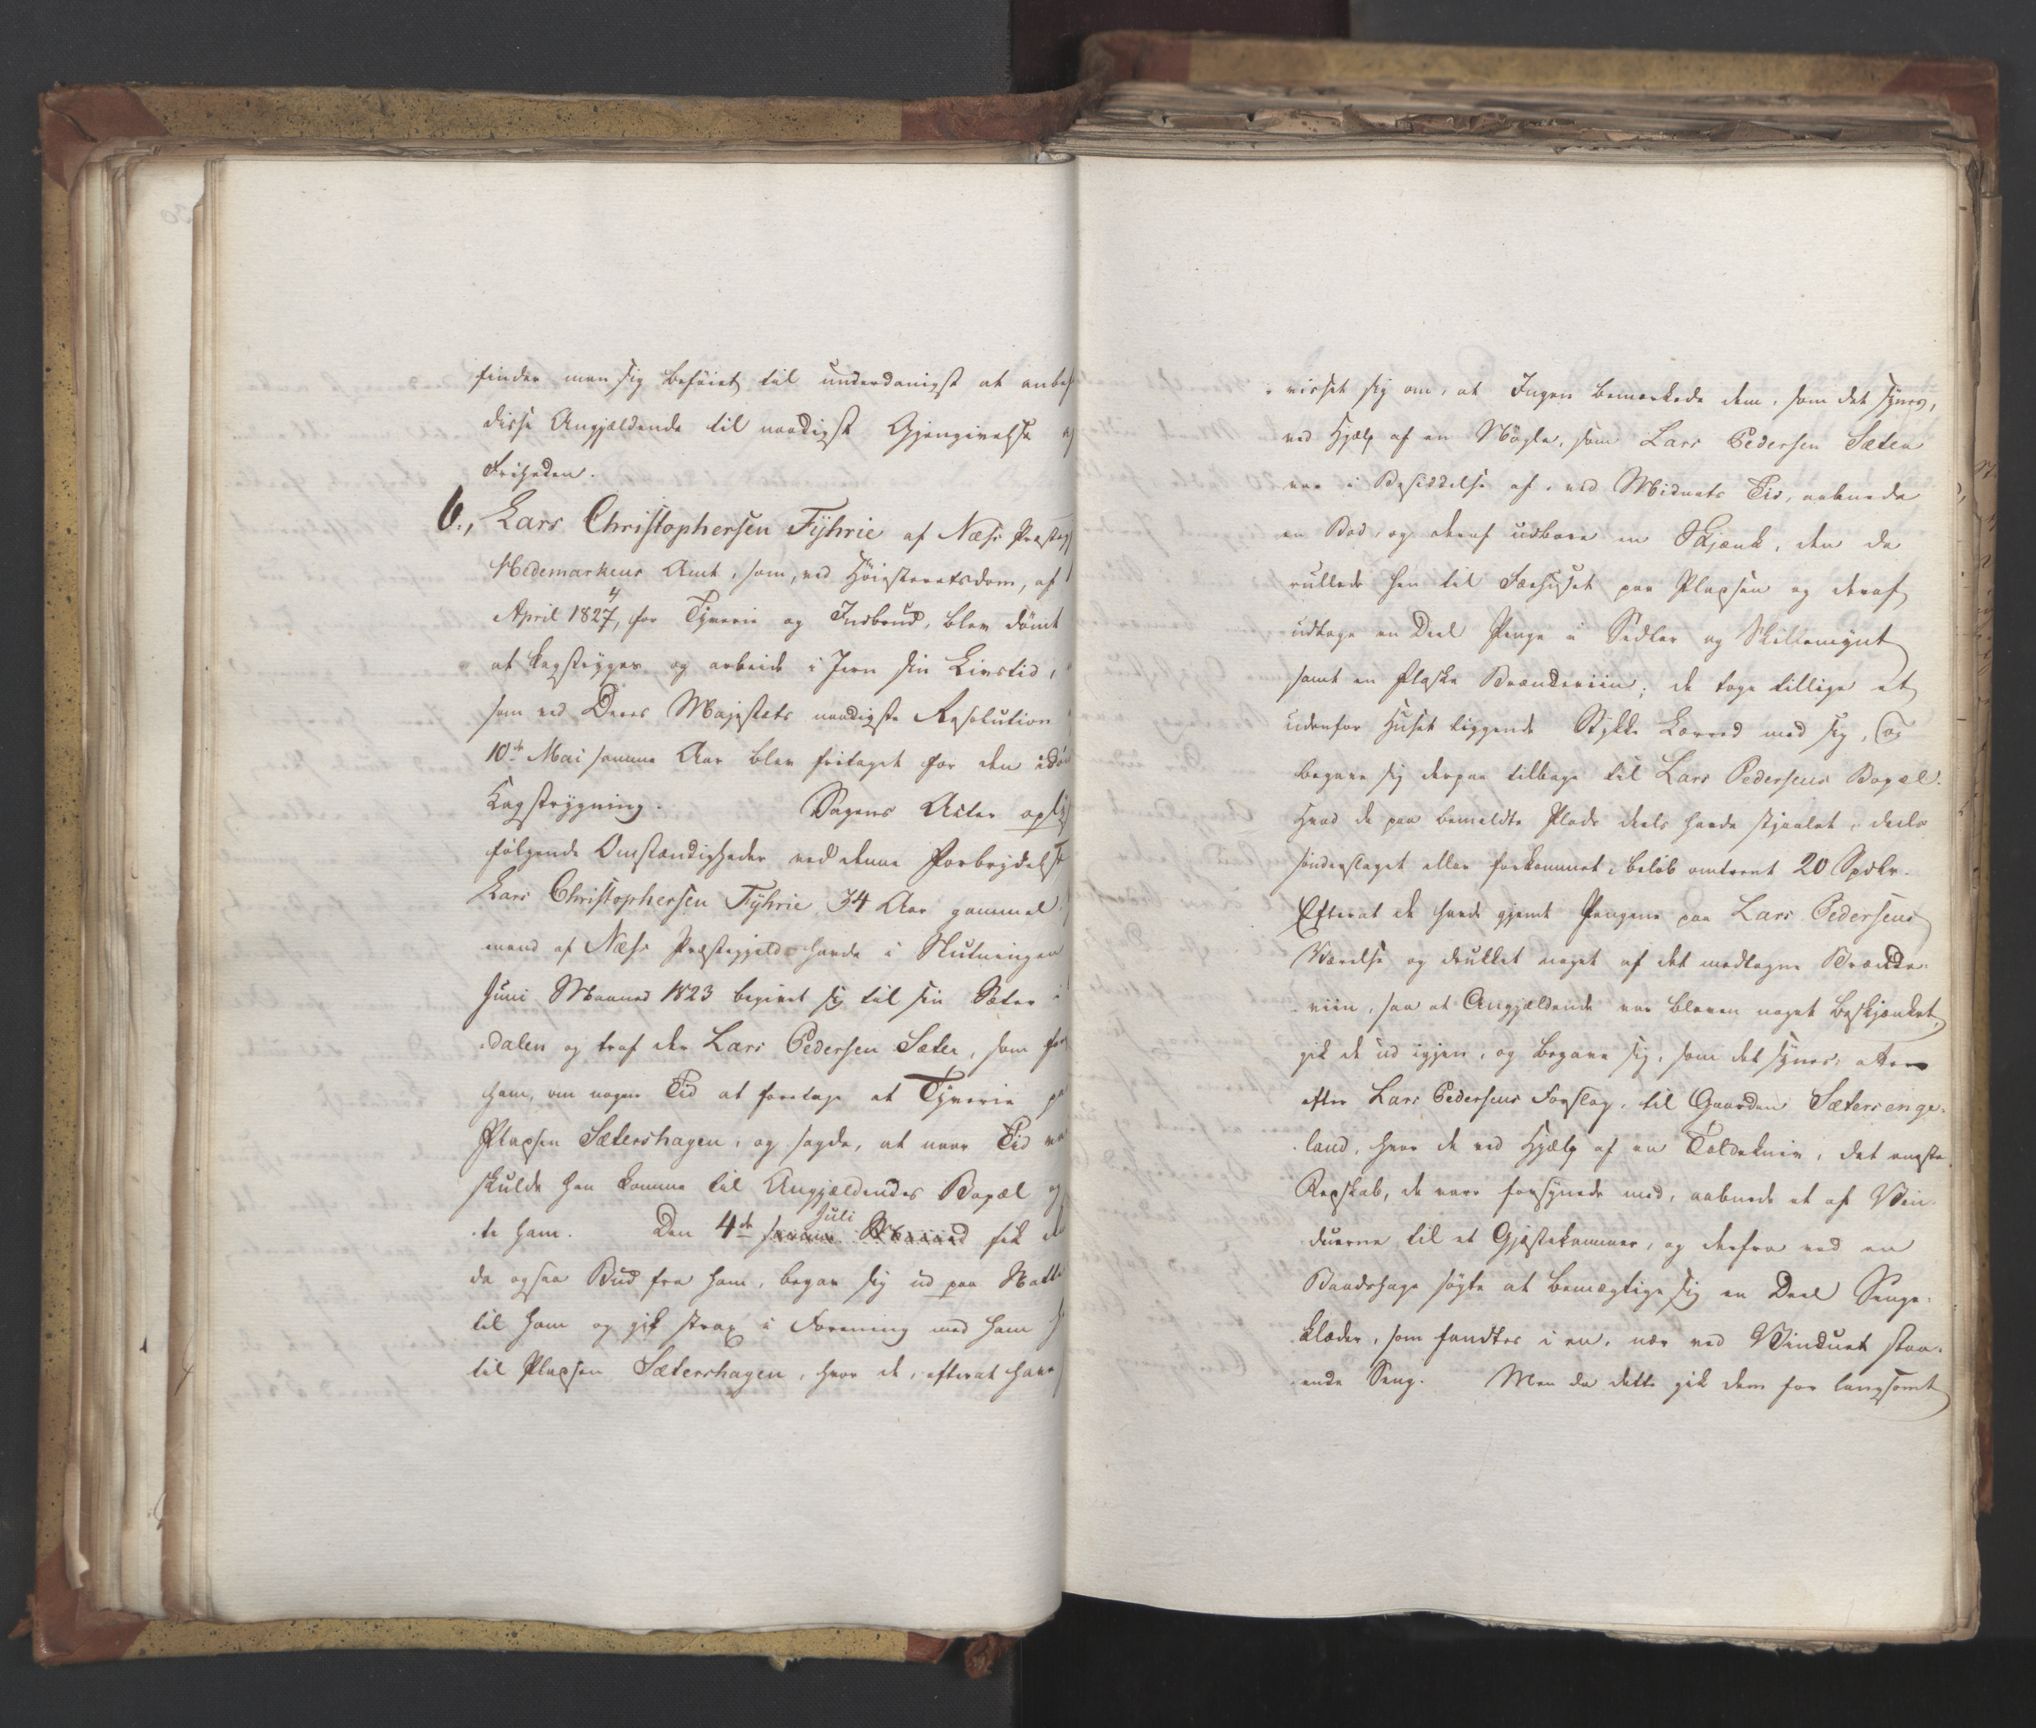 finder man sig beføiet til underdanigst at anbe
disse Angjældende til naadigst Gjengivelse
Friheden.
6., Lars Christophersen Fÿhrie af Næss Præste
Hedemarkens Amt, som, ved Høiesteretsdom, af
April 1827, for Tyverie og Indbrud, blev dømt
at kagstryges og arbeide i Jern sin Livstid,
som ved Deres Majestæts naadigste Resolution
10de Mai samme Aar blev fritaget for den idøm
Kagstrygning. Sagens Acter oply
følgende Omstændigheder ved denne Forbrydelse
Lars Christophersen Fÿhrie 34 Aar gammel
mand af Næss Præstegjeld havde i Slutningen
Juni Maaned 1823 begivet sig til sin Sæter i
dalen og traf der Lars Pedersen Sæter, som for
ham, om nogen Tid at foretage et Tyverie paa
Pladsen Sætershagen, og sagde, at naar Tid va
skulde han komme til Angjældendes Bopæl og
te ham. Den 4de samme Maaned Juli fik
da ogsaa Bud fra ham, begav sig ud paa Natte
til ham og gik strax i Forening med ham
til Pladsen Sætershagen, hvor de, efterat have
visset sig om, at Ingen bemærkede dem, som det synes,
ved Hjælp af en Nøgle, som Lars Pedersen Sæter
var i Besiddelse af, ved Midnats Tid, aabnede
en Bod, og deraf udbare en Skjænk, den de
rullede hen til Fæhuset paa Pladsen og deraf
udtoge en Deel Penge i Sedler og Skillemynt
samt en Flaske Brændeviin; de toge tillige et
udenfor Huset liggende Stykke Lærred med sig, og
begave sig derpaa tilbage til Lars Pedersens Bopæl.
Hvad de paa bemeldte Plads deels havde stjaalet, deels
sønderslaget eller forkommet, beløb omtrent 20 Spdlr.
Efterat de havde gjemt Pengene paa Lars Pedersens
Værelse og drukket noget af det medtagne Brænde-
viin, saa at Angjældende var bleven noget beskjænket,
gik de ud igjen, og begave sig, som det synes, atter
efter Lars Pedersens Forslag, til Gaarden Sætersenge-
land, hvor de ved Hjælp af en Toldekniv, det eneste
Redskab, de vare forsynede med, aabnede et af Vin-
duerne til et Gjæstekammer, og derfra ved en
Baadshage søgte at bemægtige sig en Deel Senge-
klæder, som fandtes i en, nær ved Vinduet staa-
ende Seng. Men da dette gik dem for langsomt